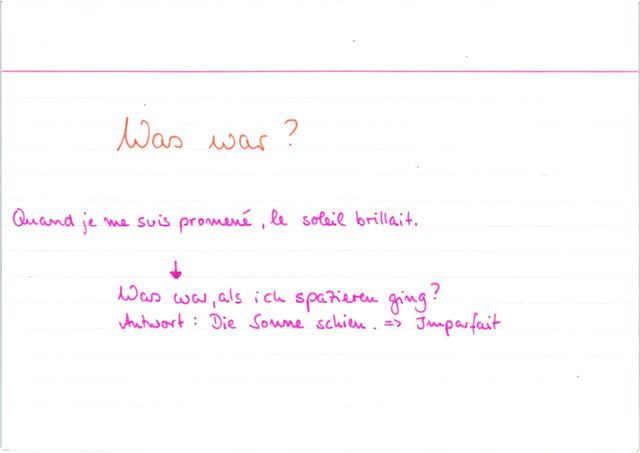 Was war?
Quand je me suis promené, le soleil brillait.
Was war, als ich spazieren ging?
Antwort: Die Sonne schien. => Imparfait